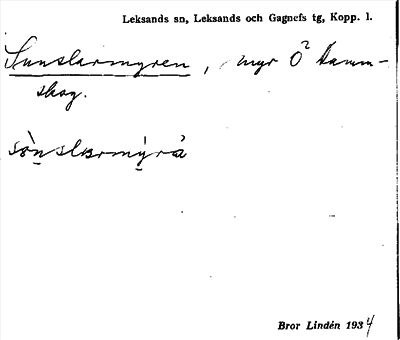 Leksands sn, Leksands och Gagnefs tg, Kopp. l.
Sunslarmyren, myr Ö² Hamm-
skog.
sònslarmýra
Bror Lindén 1934